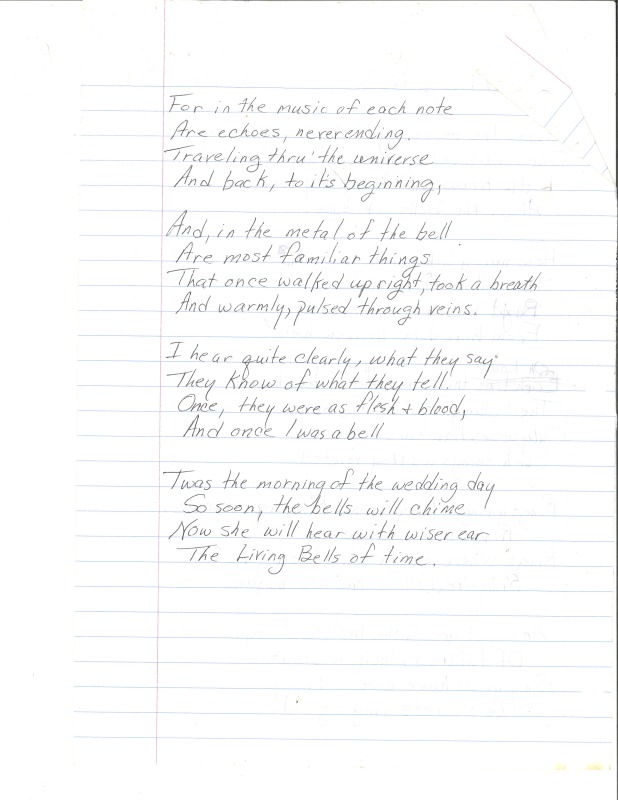 For in the music of each note
Are echoes, neverending.
Traveling thru' the universe
And back, to it's beginning,
And, in the metal of the bell
Are most familiar things
That once walked upright, took a breath
And warmly, pulsed through veins.
I hear quite clearly, what they say
They know of what they tell.
Once, they were as flesh + blood,
And once I was a bell
Twas the morning of the wedding day
So soon, the bells will chime
Now she will hear with wiser ear
The Living Bells of time.